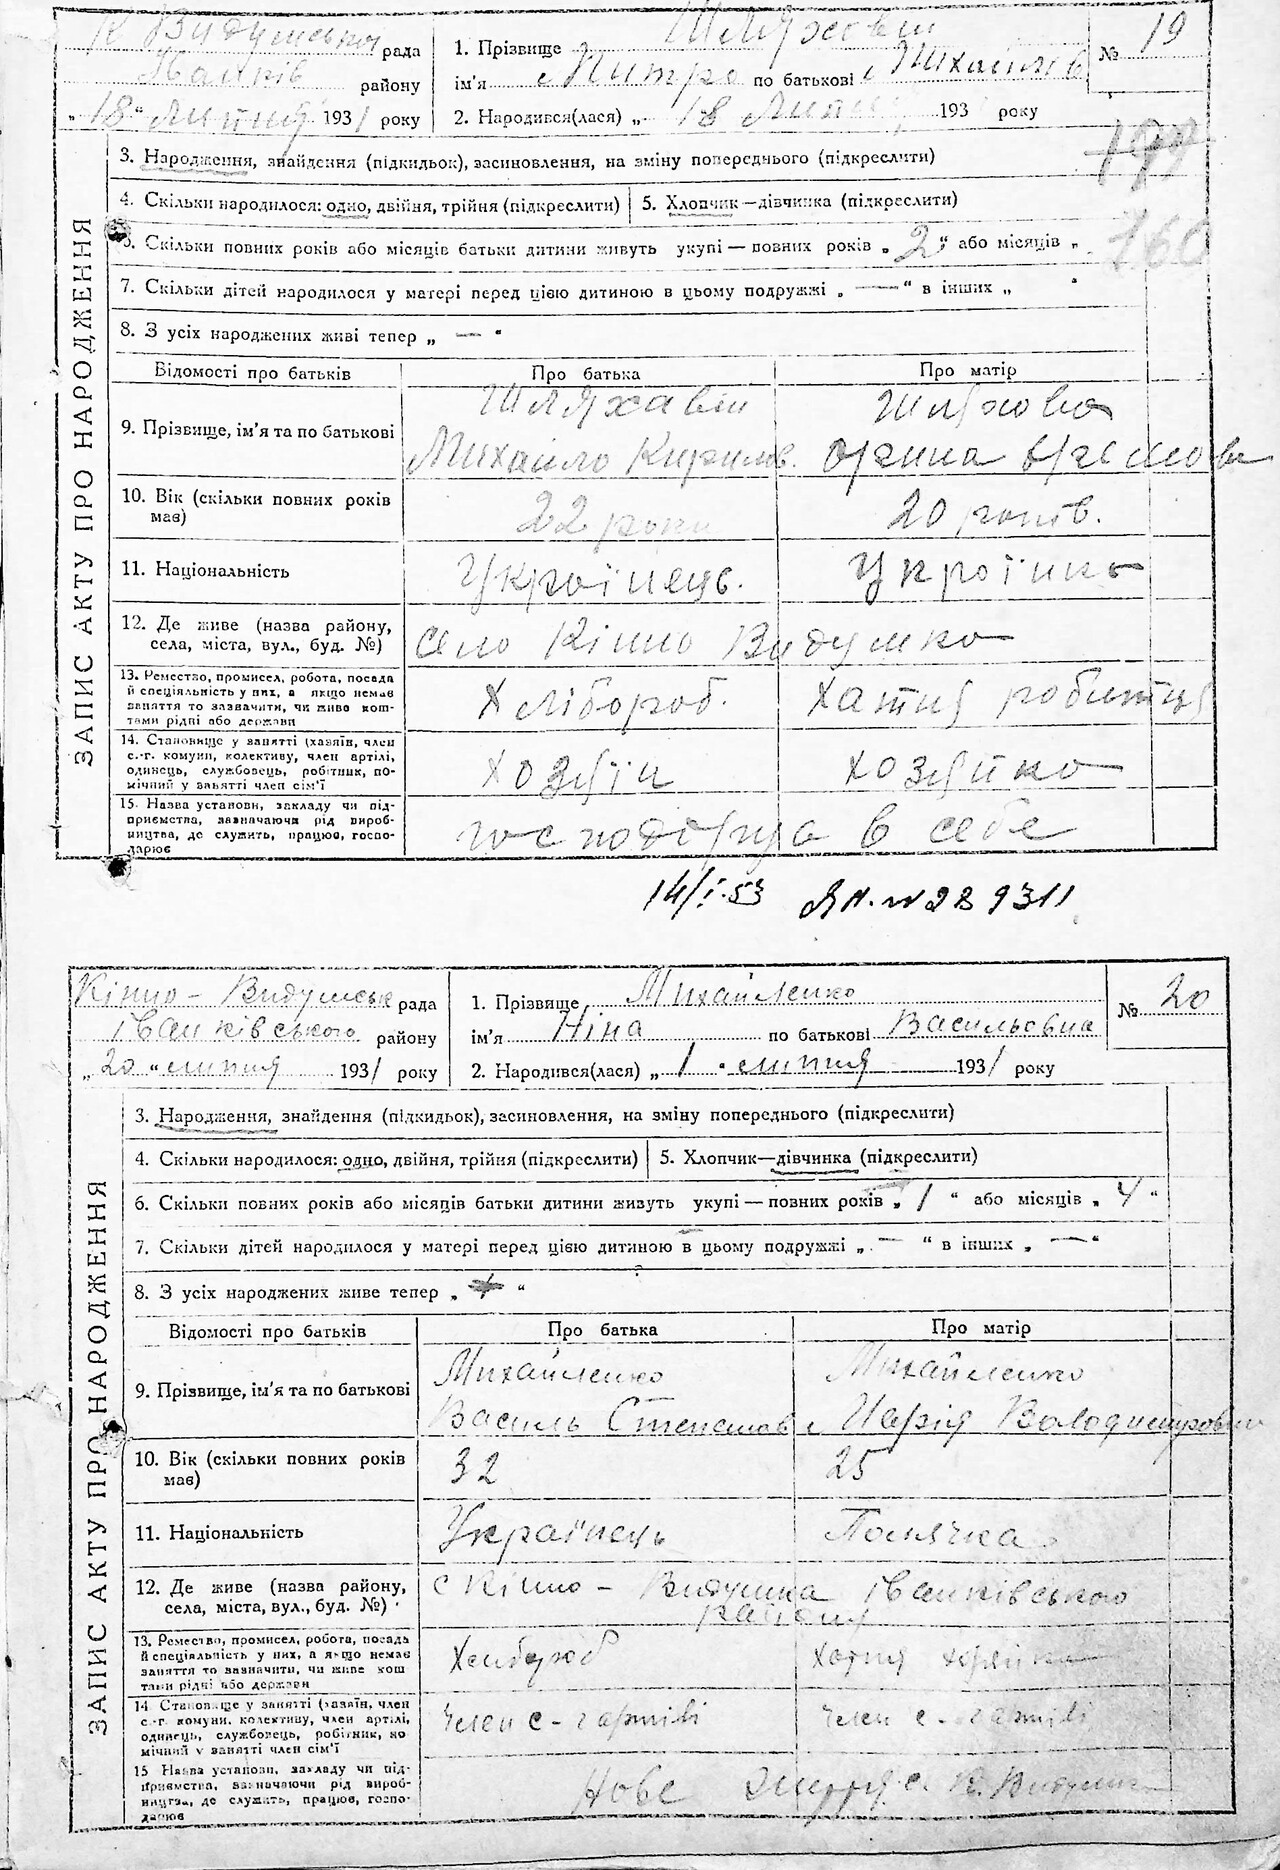 К Видумська рада
Іванків району
„18" липня 1931 року
1. Прізвище Шляхавій
ім'я Питро по батькові Михайлів
2. Народився(лася) „ 18 Липня 193 року
№ 19
199
160
ЗАПИС АКТУ ПРО НАРОДЖЕННЯ
3. Народження, знайдення (підкидьок), засиновлення, на зміну попереднього (підкреслити)
4. Скільки народилося: одно, двійня, трійня (підкреслити) 5. Хлопчик—дівчинка (підкреслити)
6. Скільки повних років або місяців батьки дитини живуть укупі — повних років „ 2 " або місяців „
7. Скільки дітей народилося у матері перед цією дитиною в цьому подружжі „ — " в інших „ "
8. З усіх народжених живі тепер „ — "
Відомості про батьків Про батька Про матір
9. Прізвище, ім'я та по батькові
Шляхавій Шляхова
Михайло Кирилов. Орина Артемова
10. Вік (скільки повних років має) 22 роки 20 років.
11. Національність Українець. Українка
12. Де живе (назва району, села, міста, вул., буд. №) село Кінно Видумка
13. Ремество, промисел, робота, посада
й спеціяльність у них, а якщо немає
заняття то зазначити, чи живе кош-
тами рідні або держави
Хлібороб. Хатня робитця
14. Становище у занятті (хазяїн, член
с.-г. комуни, колективу, член артілі,
одинець, службовець, робітник, по-
мічний у занятті член сім'ї
хозяїн хозяйка
15. Назва установи, закладу чи під-
приємства, зазначаючи рід вироб-
ництва, де служить, працює, госпо-
дарює
господарща в себе
14/I.53 ЯП. № 289311
Кінно - Видумськ рада
Іванківського району
„20" липня 1931 року
1. Прізвище Михайленко
ім'я Ніна по батькові Васильовна
2. Народився(лася) „ 1 " липня 1931 року
№ 20
ЗАПИС АКТУ ПРО НАРОДЖЕННЯ
3. Народження, знайдення (підкидьок), засиновлення, на зміну попереднього (підкреслити)
4. Скільки народилося: одно, двійня, трійня (підкреслити) 5. Хлопчик—дівчинка (підкреслити)
6. Скільки повних років або місяців батьки дитини живуть укупі — повних років „ 1 " або місяців „ 4 "
7. Скільки дітей народилося у матері перед цією дитиною в цьому подружжі „ — " в інших „ — "
8. З усіх народжених живе тепер „ "
Відомості про батьків Про батька Про матір
9. Прізвище, ім'я та по батькові
Михайленко Михайленко
Василь Степанов Марія Володимировни
10. Вік (скільки повних років має) 32 25
11. Національність Українець Полячка
12. Де живе (назва району, села, міста, вул., буд. №) с Кінно - Видумка Іванківського
району
13. Ремество, промисел, робота, посада
й спеціяльність у них, а якщо немає
заняття то зазначити, чи живе кош
тами рідні або держави
Хлібороб хатня хазяйка
14 Становище у занятті (хазяїн, член
с.-г. комуни, колективу, член артілі,
одинець, службовець, робітник, по
мічний у занятті член сім'ї
член с - г артілі член с. - г артілі
15 Назва установи, закладу чи під-
приємства, зазначаючи рід вироб-
ництва, де служить, працює, госпо-
дарює
Нове життя с. К. Видумка